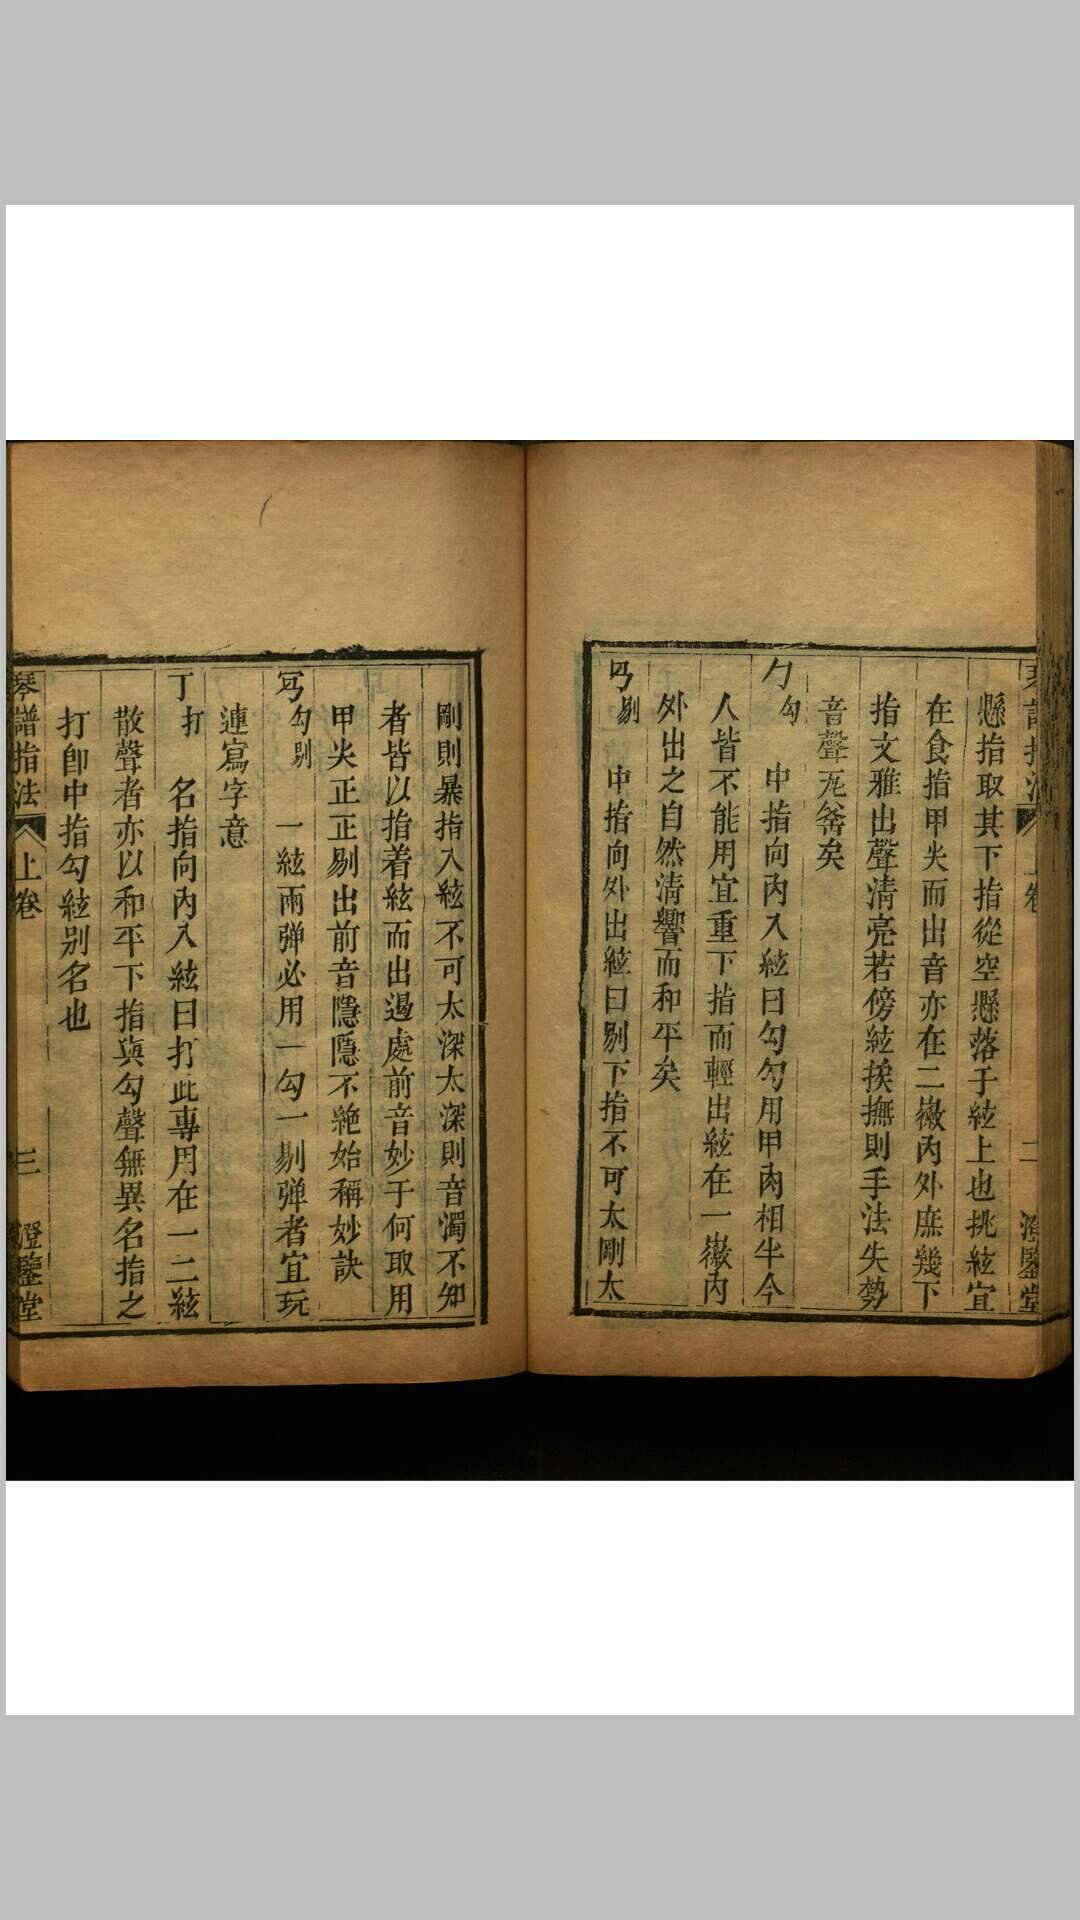 琴譜指法 上卷 二 澄鑒堂
懸指取其下指從空懸落手絃上也挑絃宜
在食指甲尖而出音亦在二徽內外庶幾下
指文雅出聲清亮若傍絃挨撫則手法失勢
音聲死煞矣
勹 勾 中指向內入絃曰勾勾用甲肉相半今
人皆不能用宜重下指而輕出絃在一徽內
外出之自然清響而和平矣
剔 中指向外出絃曰剔下指不可太剛太
剛則暴指入絃不可太深太深則音濁不知
者皆以指着絃而出過處前音妙于何取用
甲尖正正剔出前音隱隱不絕始稱妙訣
勾剔 一絃兩弹必用一勾一剔弹者宜玩
連寫字意
丁 打 名指向內入絃曰打此專用在一二絃
散聲者亦以和平下指與勾聲無異名指之
打卽中指勾絃别名也
琴譜指法 上卷 三 澄鑒堂